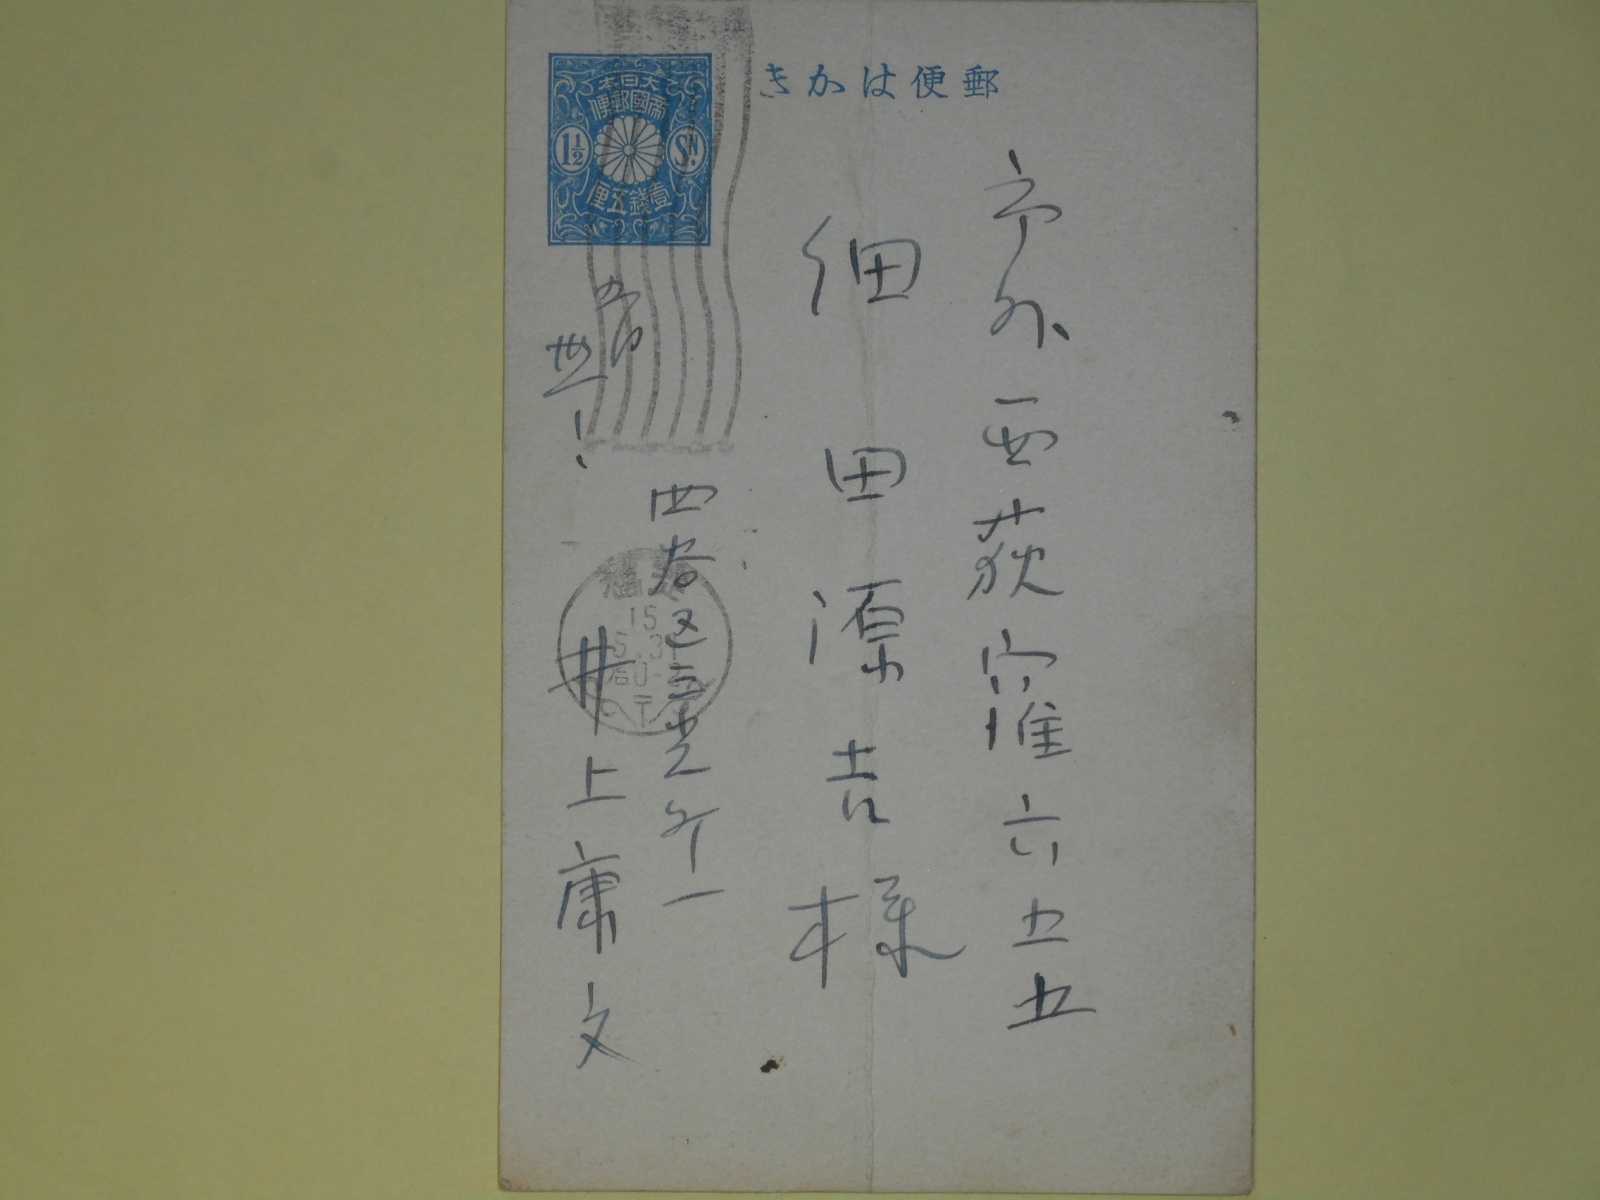 郵便はかき
大日本
帝國郵便
1½ Sn.
壹錢五厘
市外西荻窪六五五
細田源吉様
四谷区
井上康文
15
5.31